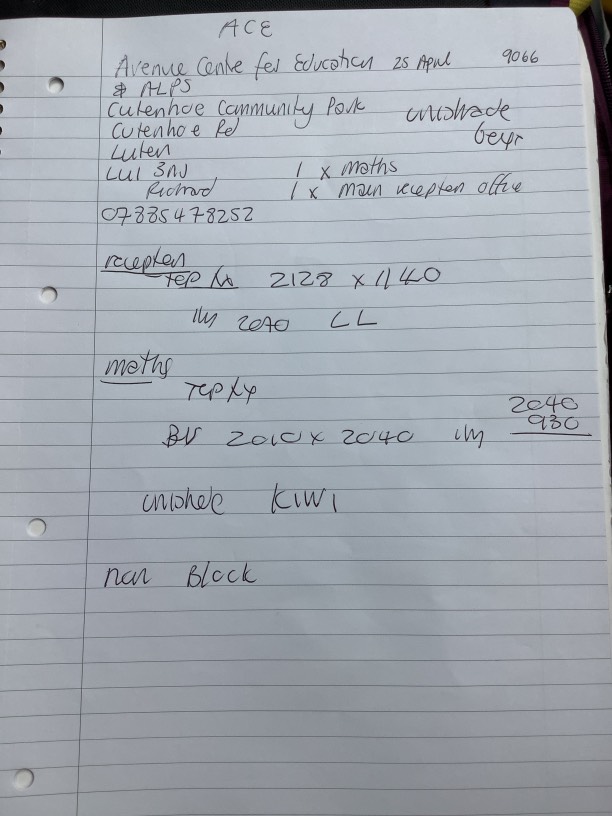 ACE
Avenue Centre for Education 25 April 9066
& ALPS
Cutenhoe Community Park unishade
Cutenhoe Rd beyr
Luton
LU1 3NJ 1 x maths
Richard 1 x main reception office
07885478252
reception
Top fix 2128 x 1140
im 2040 LL
maths
Top fix
BV 2010 x 2040 im
2040
930
unishade KIWI
non Block